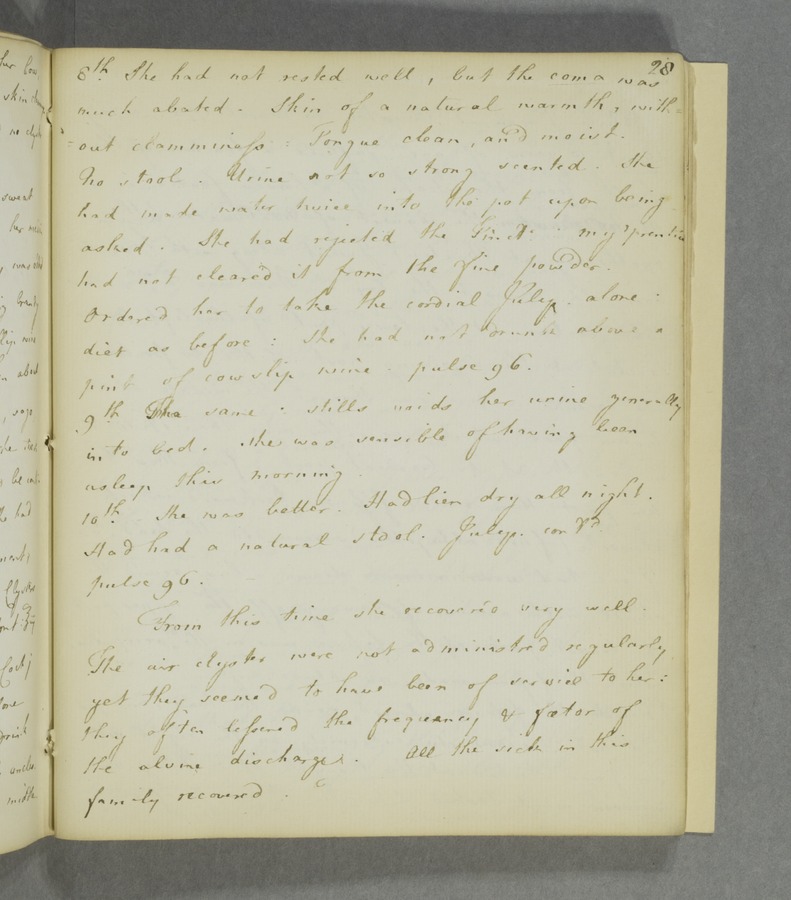 28
8th She had not rested well, but the coma was
much abated. Skin of a natural warmth, with=
=out clamminess: Tongue clean, and moist.
No stool. Urine not so strong scented. She
had made water twice into the pot upon being
asked. She had rejected the Tinct: my 'prentice
had not cleared it from the fine powder.
Ordered her to take the cordial Julep alone.
diet as before: She had not drunk above a
pint of cowslip wine. pulse 96.
9th The same: stills voids her urine generally
into bed. She was sensible of having been
asleep this morning.
10th She was better. Had lien dry all night.
Had had a natural stool. Julep. contd
pulse 96.
From this time she recovered very well.
The air clyster were not administred regularly
yet they seemed to have been of service to her:
they often lessened the frequency & fœtor of
the alvine discharges. All the sick in this
family recovered.